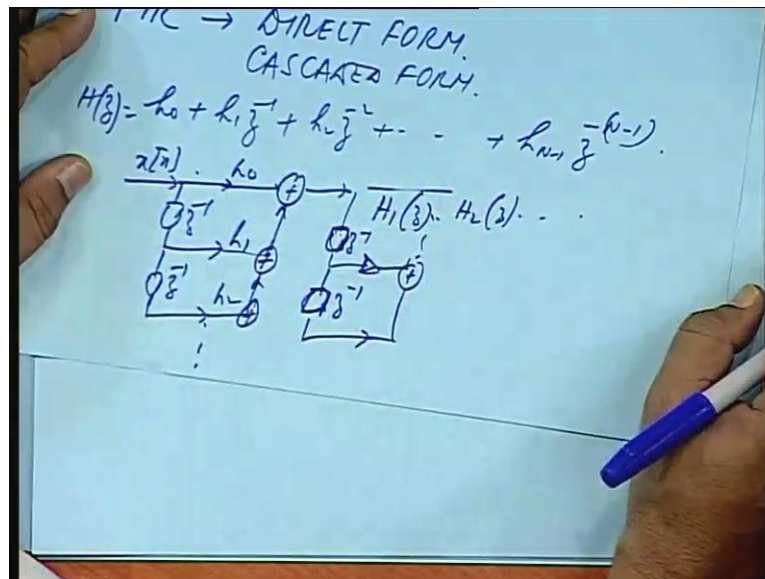 FIR → DIRECT FORM.
CASCADED FORM.
H(z) = h₀ + h₁ z⁻¹ + h₂ z⁻² + - - - + h_{N-1} z^{-(N-1)}.
x[n] . h₀ +
H₁(z). H₂(z). . .
z⁻¹ h₁ + z⁻¹ +
z⁻¹ h₂ + z⁻¹